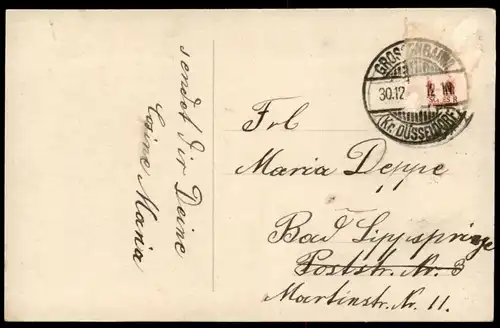 sendet Dir Deine
Cosine Maria
GROSSENBAUM
30.12
12
(Kr. DÜSSELDORF)
Frl
Maria Deppe
Bad Lippspringe
Poststr. Nr. 3
Martinstr. Nr. 11.